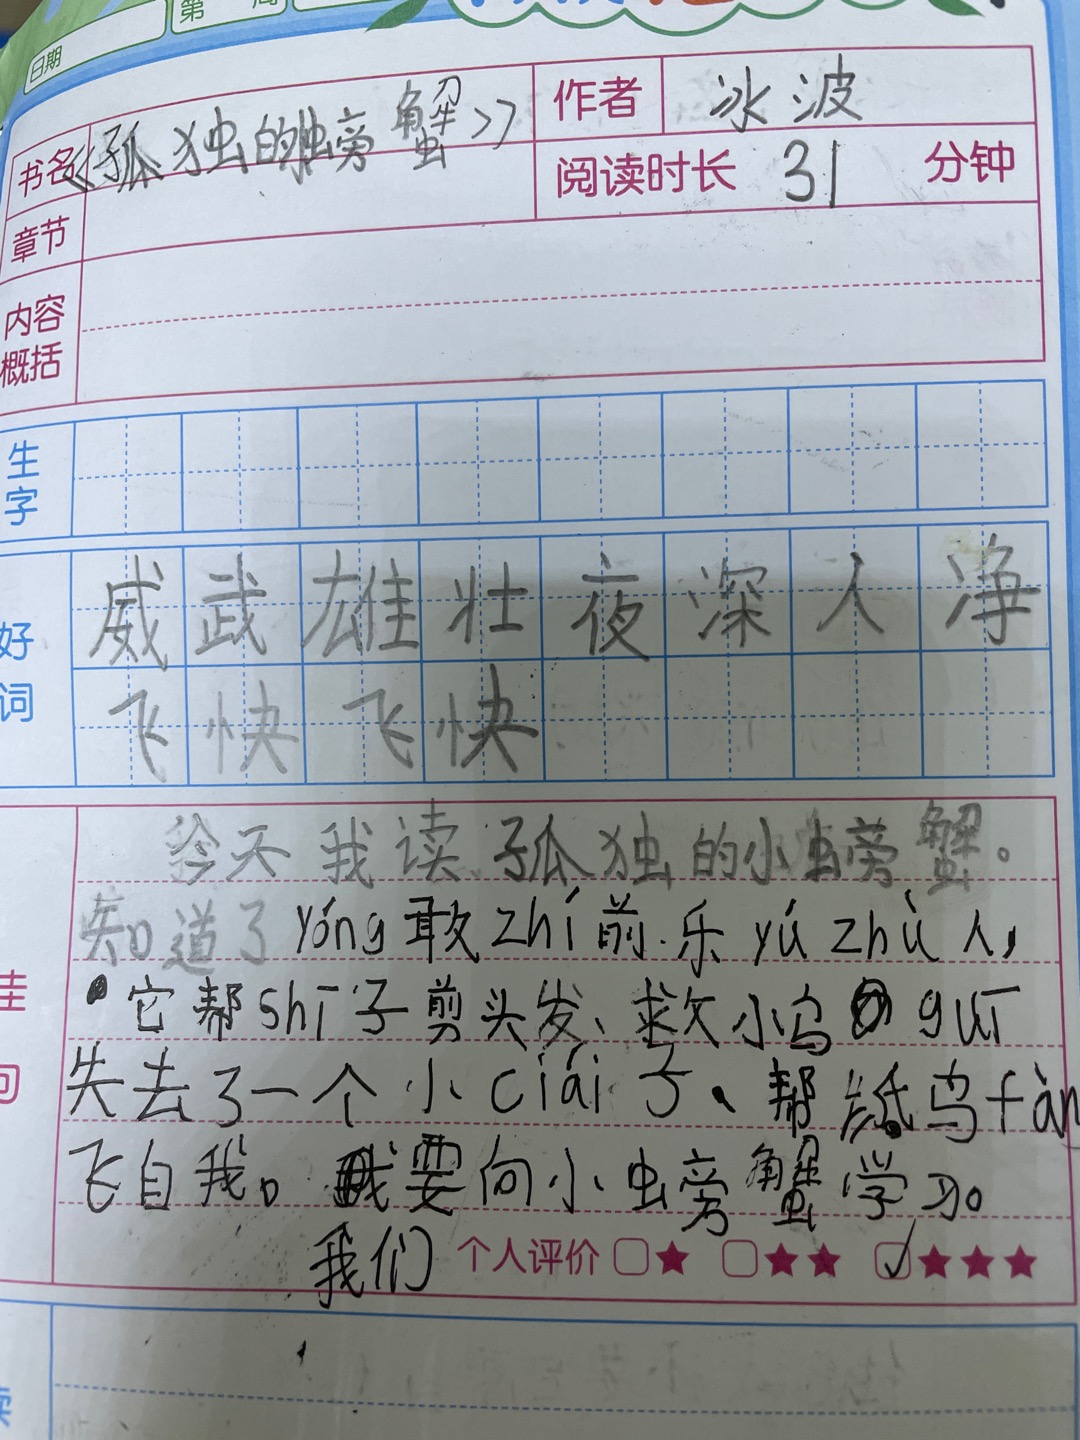 第 周
日期
书名 《孤独的螃蟹》 作者 冰波
阅读时长 31 分钟
章节
内容
概括
生
字
威武雄壮夜深人净
好
词
飞快飞快
今天我读孤独的小螃蟹。
知道了yóng敢zhí前.乐yú zhù人,
它帮shī子剪头发、求小乌guī
佳
失去了一个小ciái子、帮纸鸟fàn
句
飞自我。我要向小螃蟹学习。
我们 个人评价 ★ ★★ ✓★★★
读